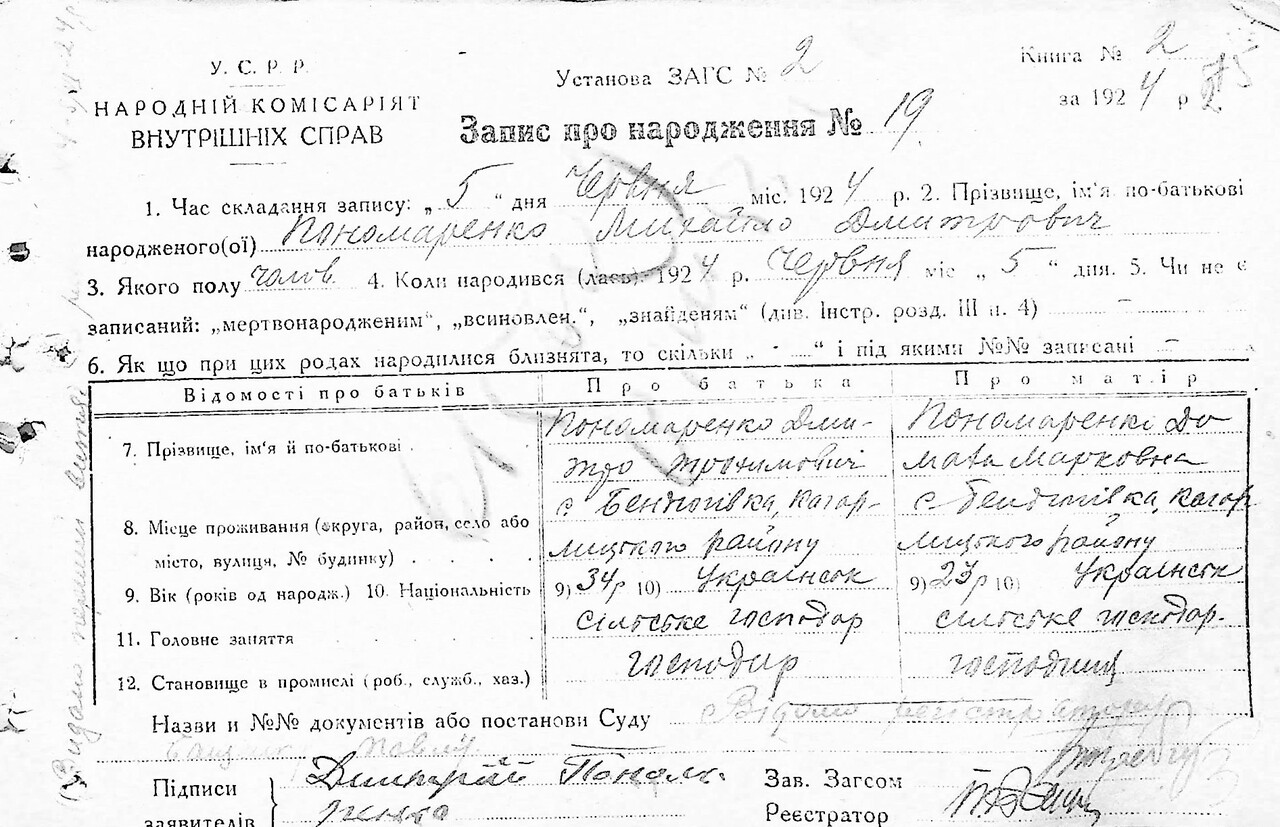 У. С. Р. Р.
НАРОДНІЙ КОМІСАРІЯТ
ВНУТРІШНІХ СПРАВ
Установа ЗАГС № 2
Книга № 2
за 1924 р
Запис про народження № 19
1. Час складання запису: „ 5 " дня Червня міс. 1924 р. 2. Прізвище, ім'я по-батькові
народженого(ої) Пономаренко Михайло Дмитрович
3. Якого полу чолов. 4. Коли народився (лась) 1924 р. Червня міс „ 5 " дня. 5. Чи не є
записаний: „мертвонародженим", „всиновлен.", „знайденям" (див. Інстр. розд. III п. 4) —
6. Як що при цих родах народилися близнята, то скільки „ - " і під якими №№ записані —
Відомості про батьків Про батька Про матір
7. Прізвище, ім'я й по-батькові Пономаренко Дми- Пономаренко До
тро Трохимович мата Марковна
8. Місце проживання (округа, район, село або с Бендюгівка, Кагар- с Бендюгівка, Кагар
місто, вулиця, № будинку) лицького району лицького району
9. Вік (років од народж.) 10. Національність 9) 34р 10) Українськ 9) 23р 10) Українськ
11. Головне заняття сільське господар сільське господар.
12. Становище в промислі (роб., служб., хаз.) господар господиня
Назви и №№ документів або постанови Суду Відомо регістратору
Підписи
заявителів
Дмитрий Поном.
ренко
Зав. Загсом
Реєстратор